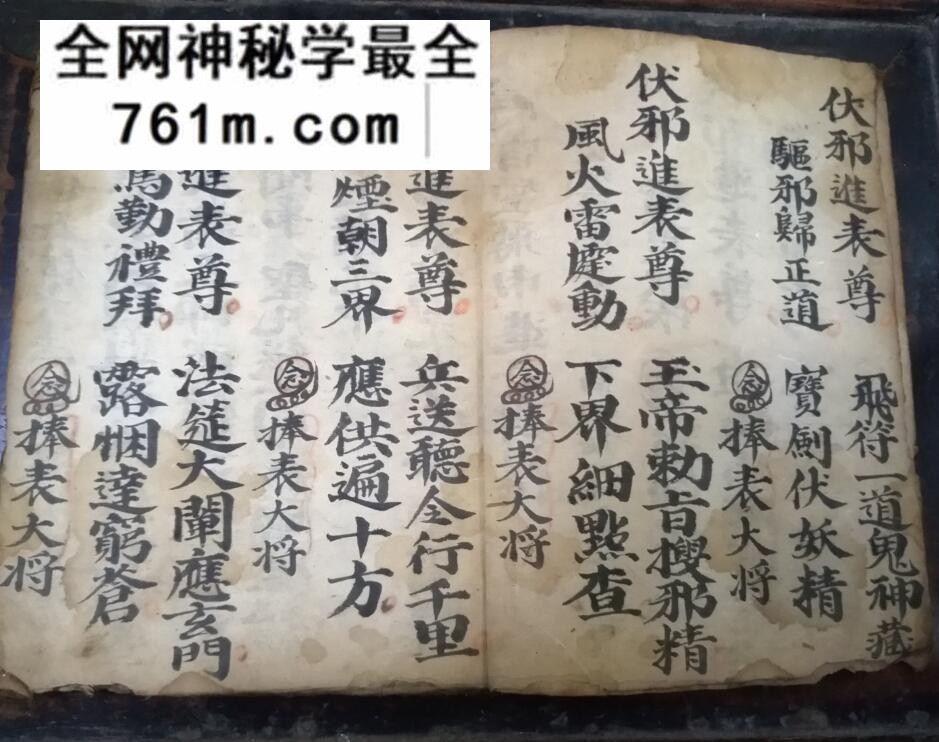 全网神秘学最全
761m.com
伏邪進表尊 飛符一道鬼神藏
驅邪歸正道 寶劍伏妖精
念 捧表大将
伏邪進表尊 玉帝勅旨搜邪精
風火雷霆動 下界細點查
念 捧表大将
進表尊 兵送聽令行千里
煙朝三界 應供遍十方
念 捧表大将
進表尊 法筵大闡應玄門
勤禮拜 露悃達窮蒼
念 捧表大将